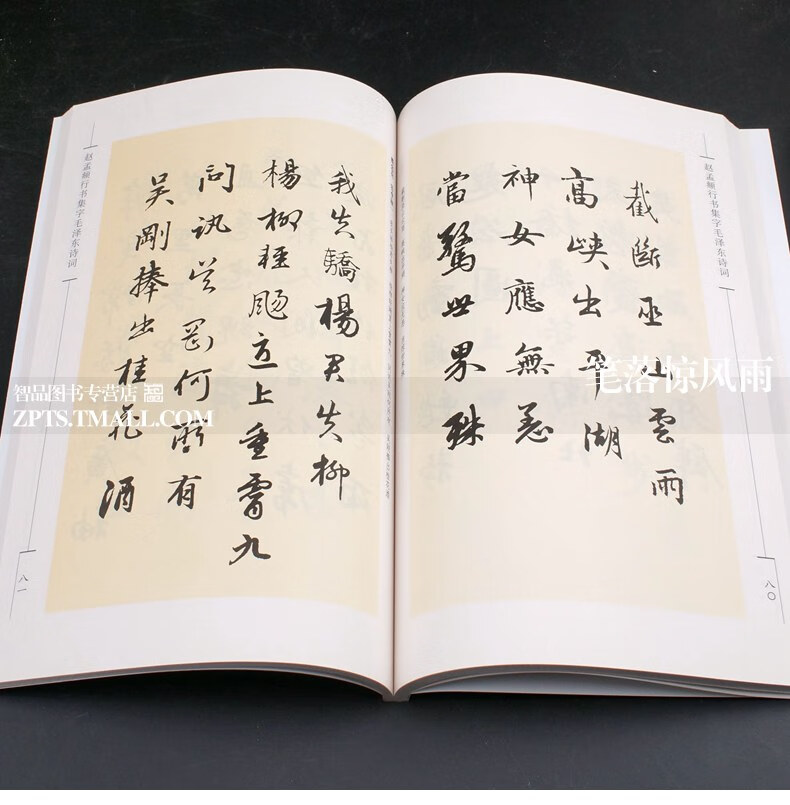 赵孟頫行书集字毛泽东诗词
截斷巫山雲雨
高峽出平湖
神女應無恙
當驚世界殊
八〇
我失驕楊君失柳
楊柳輕颺直上重霄九
問訊吳剛何所有
吳剛捧出桂花酒
赵孟頫行书集字毛泽东诗词
八一
智品图书专营店
ZPTS.TMALL.COM
笔落惊风雨